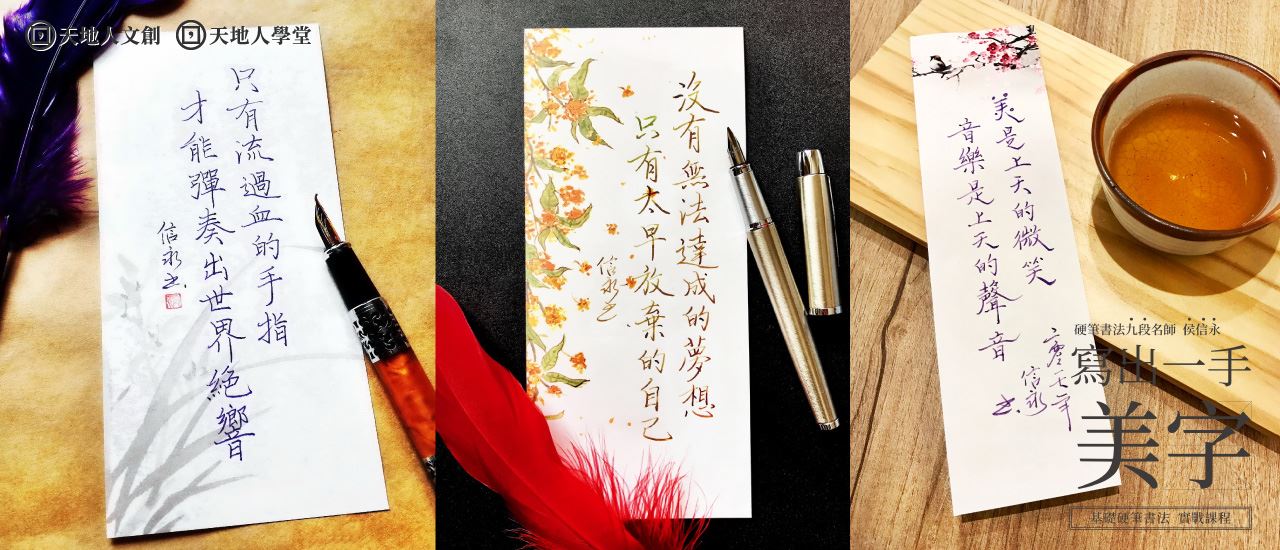 天地人文創 天地人學堂
只有流過血的手指
才能彈奏出世界絕響
信永書
沒有無法達成的夢想
只有太早放棄的自己
信永書
美是上天的微笑
音樂是上天的聲音
信永書
硬筆書法九段名師 侯信永
寫出一手
美字
基礎硬筆書法 實戰課程